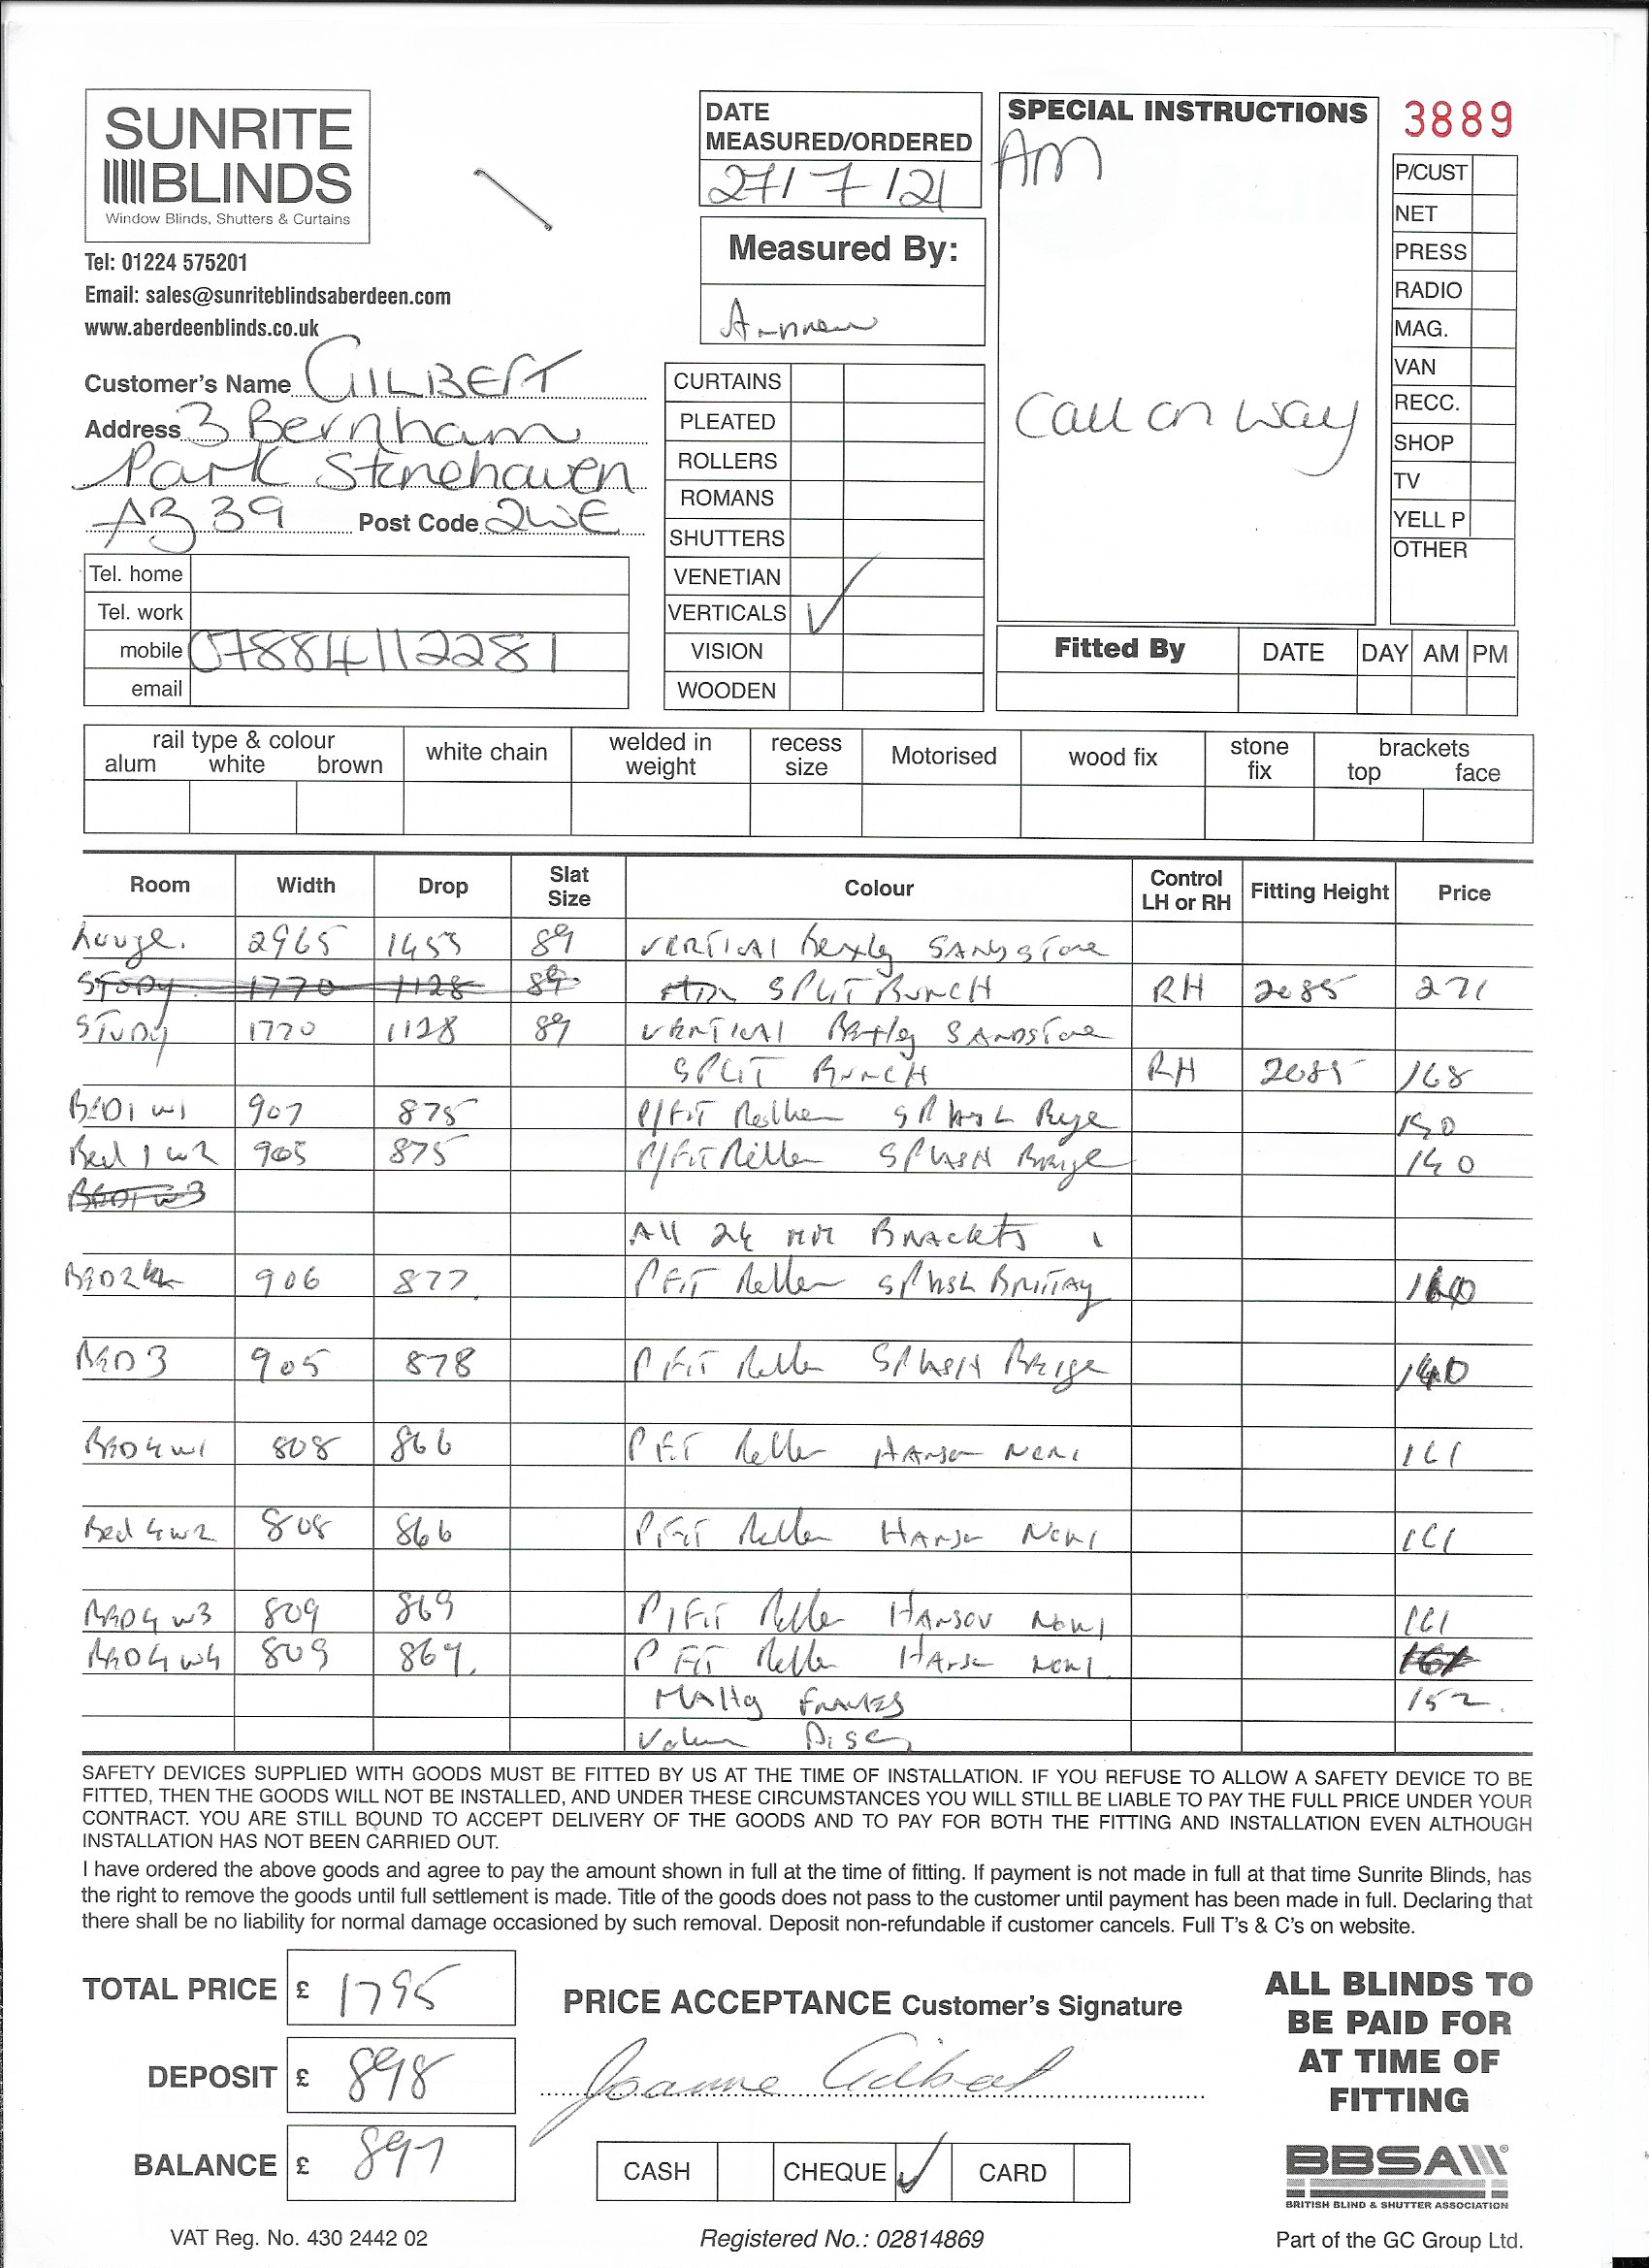 SUNRITE
BLINDS
Window Blinds, Shutters & Curtains
Tel: 01224 575201
Email: sales@sunriteblindsaberdeen.com
www.aberdeenblinds.co.uk
DATE
MEASURED/ORDERED
27/7/21
Measured By:
SPECIAL INSTRUCTIONS
AM
Call on way
3889
P/CUST
NET
PRESS
RADIO
MAG.
VAN
RECC.
SHOP
TV
YELL P
OTHER
Customer's Name GILBERT
Address 3 Bernham
Park Stonehaven
AB39 Post Code 2WE
Tel. home
Tel. work
mobile 07884112281
email
CURTAINS
PLEATED
ROLLERS
ROMANS
SHUTTERS
VENETIAN
VERTICALS ✓
VISION
WOODEN
Fitted By DATE DAY AM PM
rail type & colour
alum white brown
white chain
welded in
weight
recess
size
Motorised
wood fix
stone
fix
brackets
top face
Room Width Drop Slat Size Colour Control LH or RH Fitting Height Price
Louge. 2965 1453 89 VERTICAL Bexley SANDSTone
STUDY 1770 1128 89 SPLIT BUNCH RH 2085 271
STUDY 1770 1128 89 VERTICAL Bexley SANDSTone
SPLIT BUNCH RH 2085 168
BED1 w1 907 875 P/FIT Roller SPlASh Beige
Bed 1 w2 905 875 P/FIT Roller SPlASH Beige 140
BED1 w3
All 24 mm BrackeTs
BED2 906 877 P FIT Roller SPlASh
BED 3 905 878 P FIT Roller SPlASH Beige 140
BED 4 w1 808 866 P FIT Roller 161
Bed 4 w2 808 866 P FIT Roller 161
BED 4 w3 809 869 P/FIT Roller 161
BED 4 w4 809 869. P FIT Roller 161
FRAMES 152.
SAFETY DEVICES SUPPLIED WITH GOODS MUST BE FITTED BY US AT THE TIME OF INSTALLATION. IF YOU REFUSE TO ALLOW A SAFETY DEVICE TO BE
FITTED, THEN THE GOODS WILL NOT BE INSTALLED, AND UNDER THESE CIRCUMSTANCES YOU WILL STILL BE LIABLE TO PAY THE FULL PRICE UNDER YOUR
CONTRACT. YOU ARE STILL BOUND TO ACCEPT DELIVERY OF THE GOODS AND TO PAY FOR BOTH THE FITTING AND INSTALLATION EVEN ALTHOUGH
INSTALLATION HAS NOT BEEN CARRIED OUT.
I have ordered the above goods and agree to pay the amount shown in full at the time of fitting. If payment is not made in full at that time Sunrite Blinds, has
the right to remove the goods until full settlement is made. Title of the goods does not pass to the customer until payment has been made in full. Declaring that
there shall be no liability for normal damage occasioned by such removal. Deposit non-refundable if customer cancels. Full T's & C's on website.
TOTAL PRICE £ 1795
DEPOSIT £ 898
BALANCE £ 897
PRICE ACCEPTANCE Customer's Signature
Joanne Gilbert
CASH CHEQUE ✓ CARD
ALL BLINDS TO
BE PAID FOR
AT TIME OF
FITTING
BBSA
BRITISH BLIND & SHUTTER ASSOCIATION
VAT Reg. No. 430 2442 02
Registered No.: 02814869
Part of the GC Group Ltd.